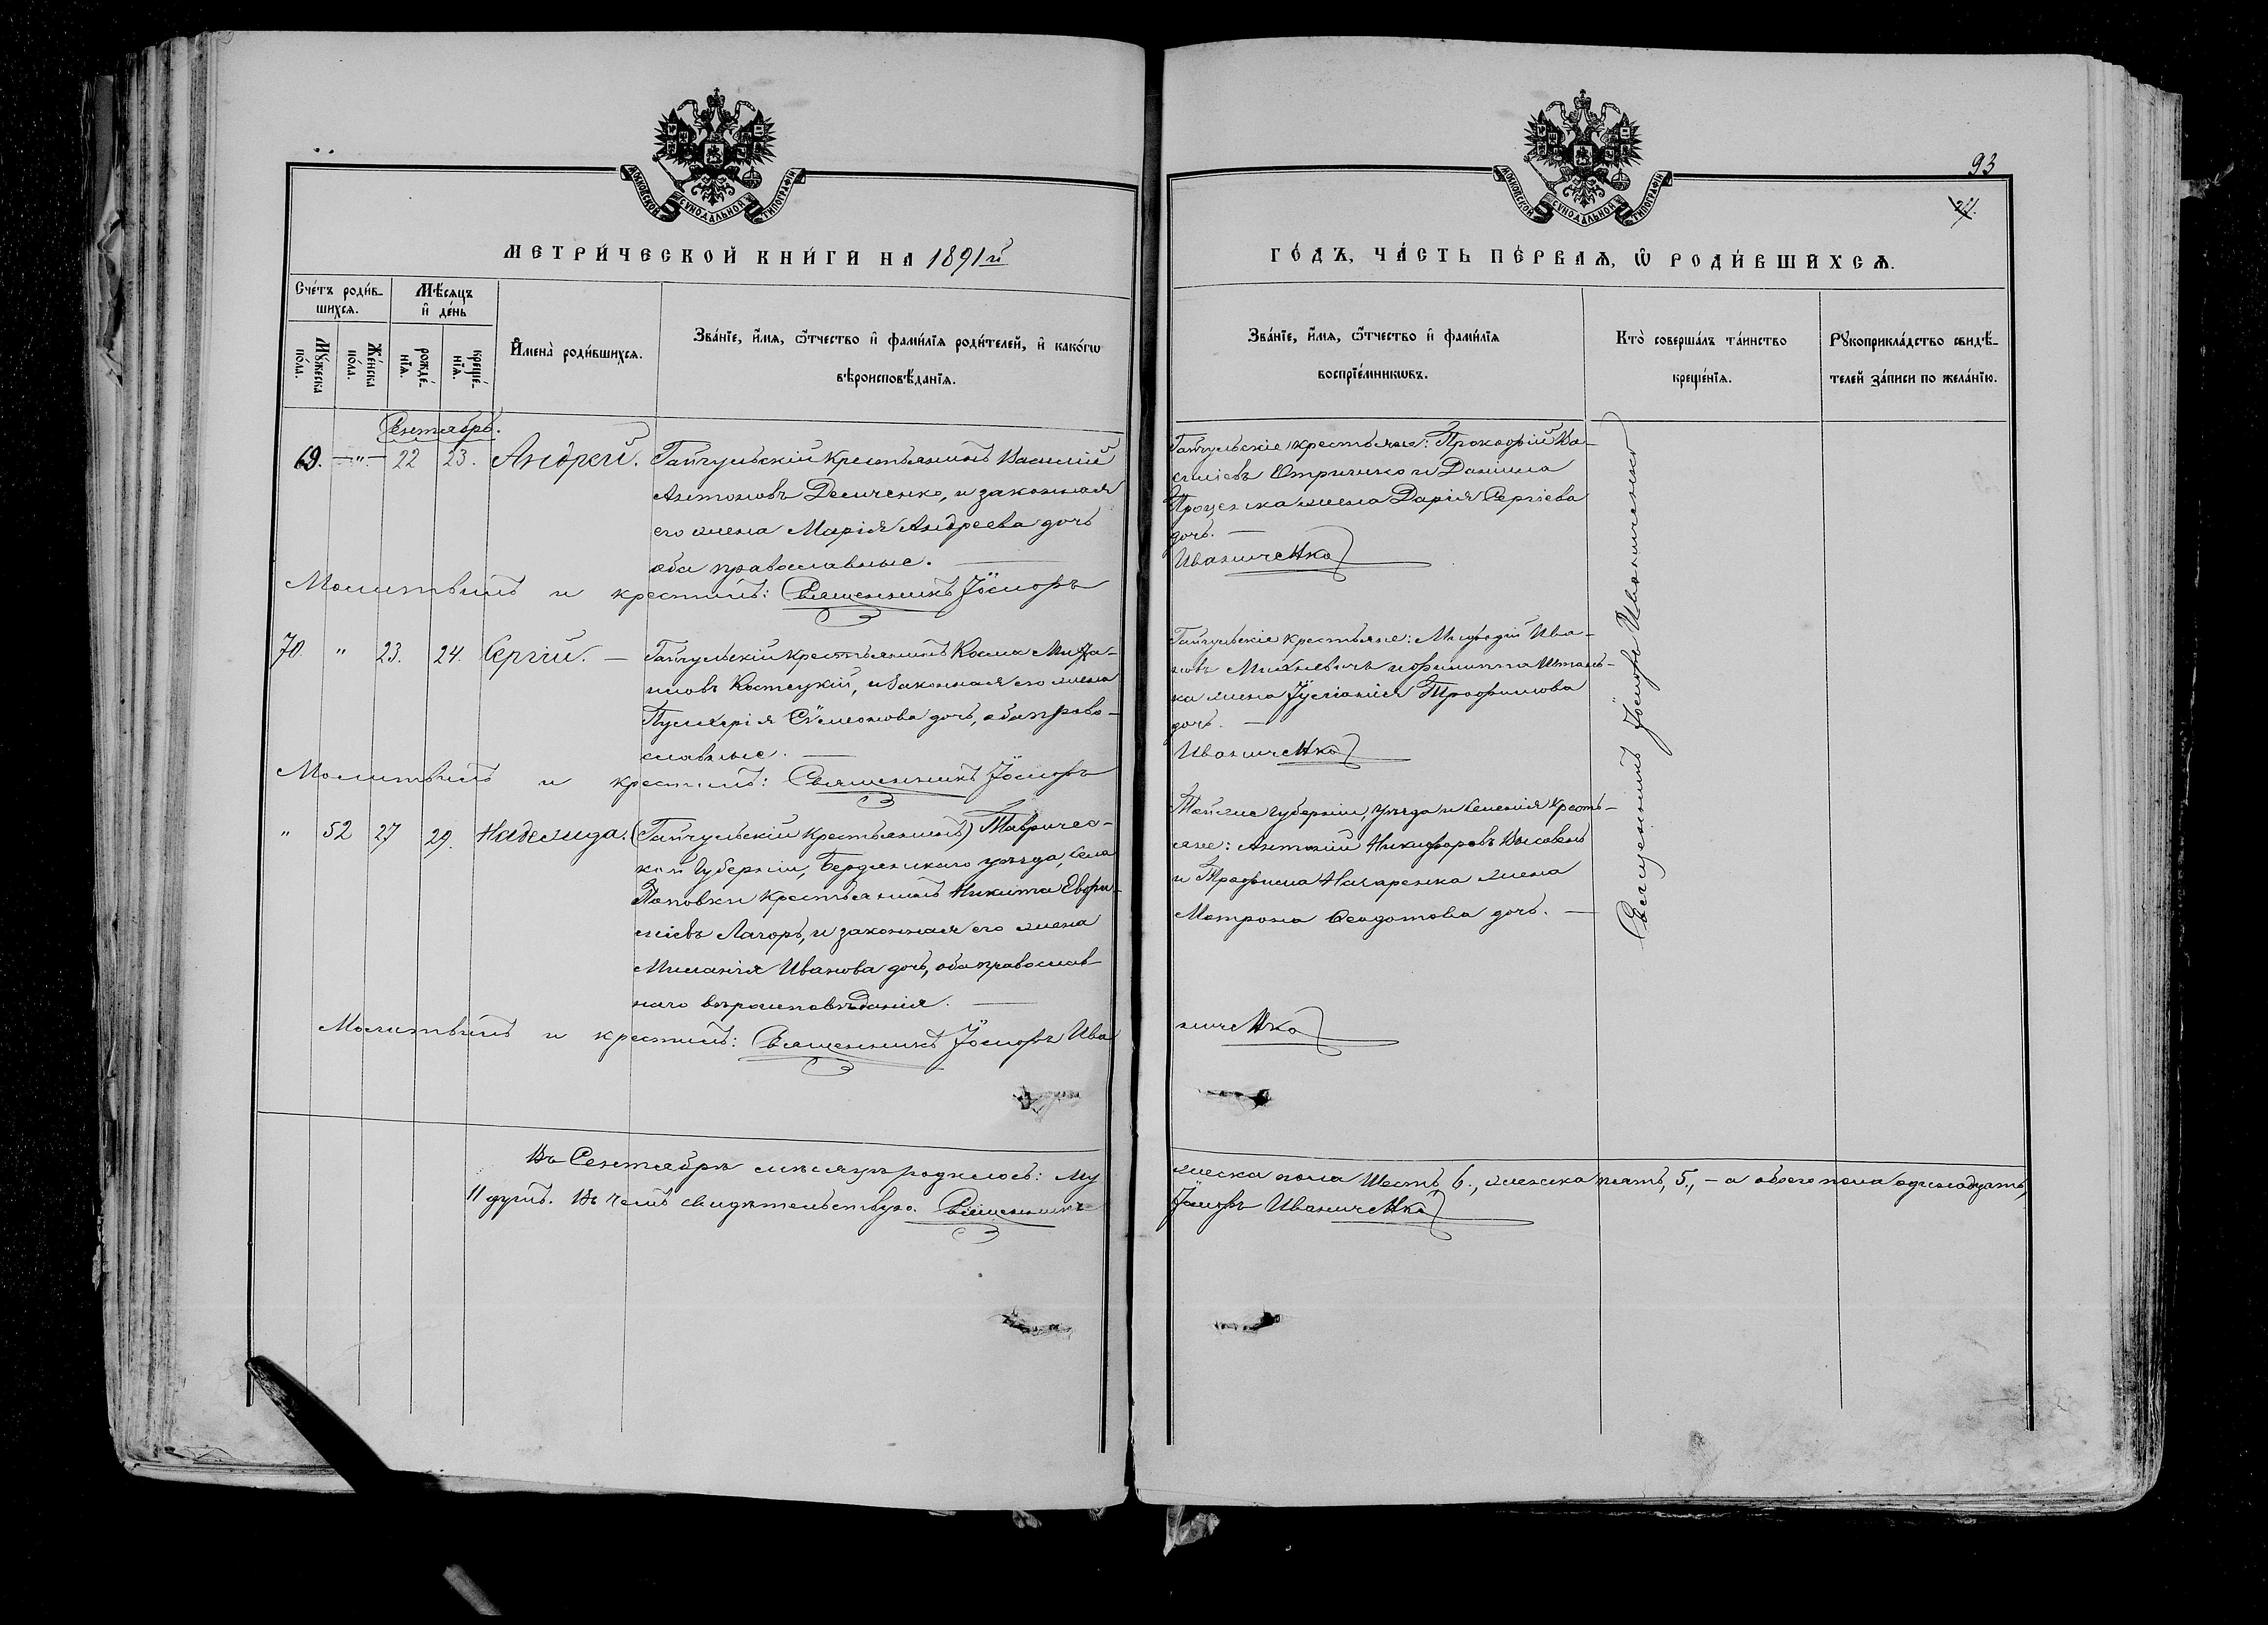 МОСКОВСКОЙ СУНОДАЛЬНОЙ ТИПОГРАФІИ
МЕТРИЧЕСКОЙ КНИГИ НА 1891й
Счетъ родив-
шихся.
Мѣсяцъ
и день
Мужеска
пола.
Женска
пола.
рожде-
нія.
креще-
нія.
Имена родившихся.
Званіе, имя, отчество и фамилія родителей, и какого
вѣроисповѣданія.
Сентябрь.
69. — " — 22 23. Андрей. Гайчульскій крестьянинъ Василій
Антоновъ Демченко, и законная
его жена Марія Андреева дочь
оба православные.
Молитвилъ и крестилъ: Священникъ Іосифъ
70. " 23. 24. Сергій. — Гайчульскій крестьянинъ Косма
Костецкій, и законная его жена
Пульхерія Сѵмеонова дочь, оба право-
славные.
Молитвилъ и крестилъ: Священникъ Іосифъ
" 52 27 29. Надежда. (Гайчульскій крестьянинъ) Тавричес-
кой губерніи, Бердянскаго уѣзда, села
Поповки крестьянинъ Никита Евфи-
міевъ Лагоръ, и законная его жена
Миланія Иванова дочь, оба православ-
наго вѣроисповѣданія.
Молитвилъ и крестилъ: Священникъ Іосифъ Ива
Въ Сентябрѣ мѣсяцѣ родилось: му
11 душъ. Въ чемъ свидѣтельствую. Священникъ
93
МОСКОВСКОЙ СУНОДАЛЬНОЙ ТИПОГРАФІИ
ГОДЪ, ЧАСТЬ ПЕРВАЯ, Ѡ РОДИВШИХСЯ.
Званіе, имя, отчество и фамилія
воспріемниковъ.
Кто совершалъ таинство
крещенія.
Рукоприкладство свидѣ-
телей записи по желанію.
Гайчульскіе крестьяне: Прокофій Ва-
силіевъ и Даніила
Проценка жена Дарія Сергіева
дочь. —
Иваниченко
Гайчульскіе крестьяне: Меѳодій Ива-
новъ Михневичъ и Филиппа
жена Іуліанія Трофимова
дочь. —
Иваниченко
Той же губерніи, уѣзда и селенія кресть-
яне: Антоній Никифоровъ
и Трофима Назаренка жена
Матрона Ѳеодотова дочь. —
ниченко
Священникъ Іосифъ Иваниченко
жеска пола шесть, 6., женска пять, 5., — а обоего пола одинадцать,
Іосифъ Иваниченко